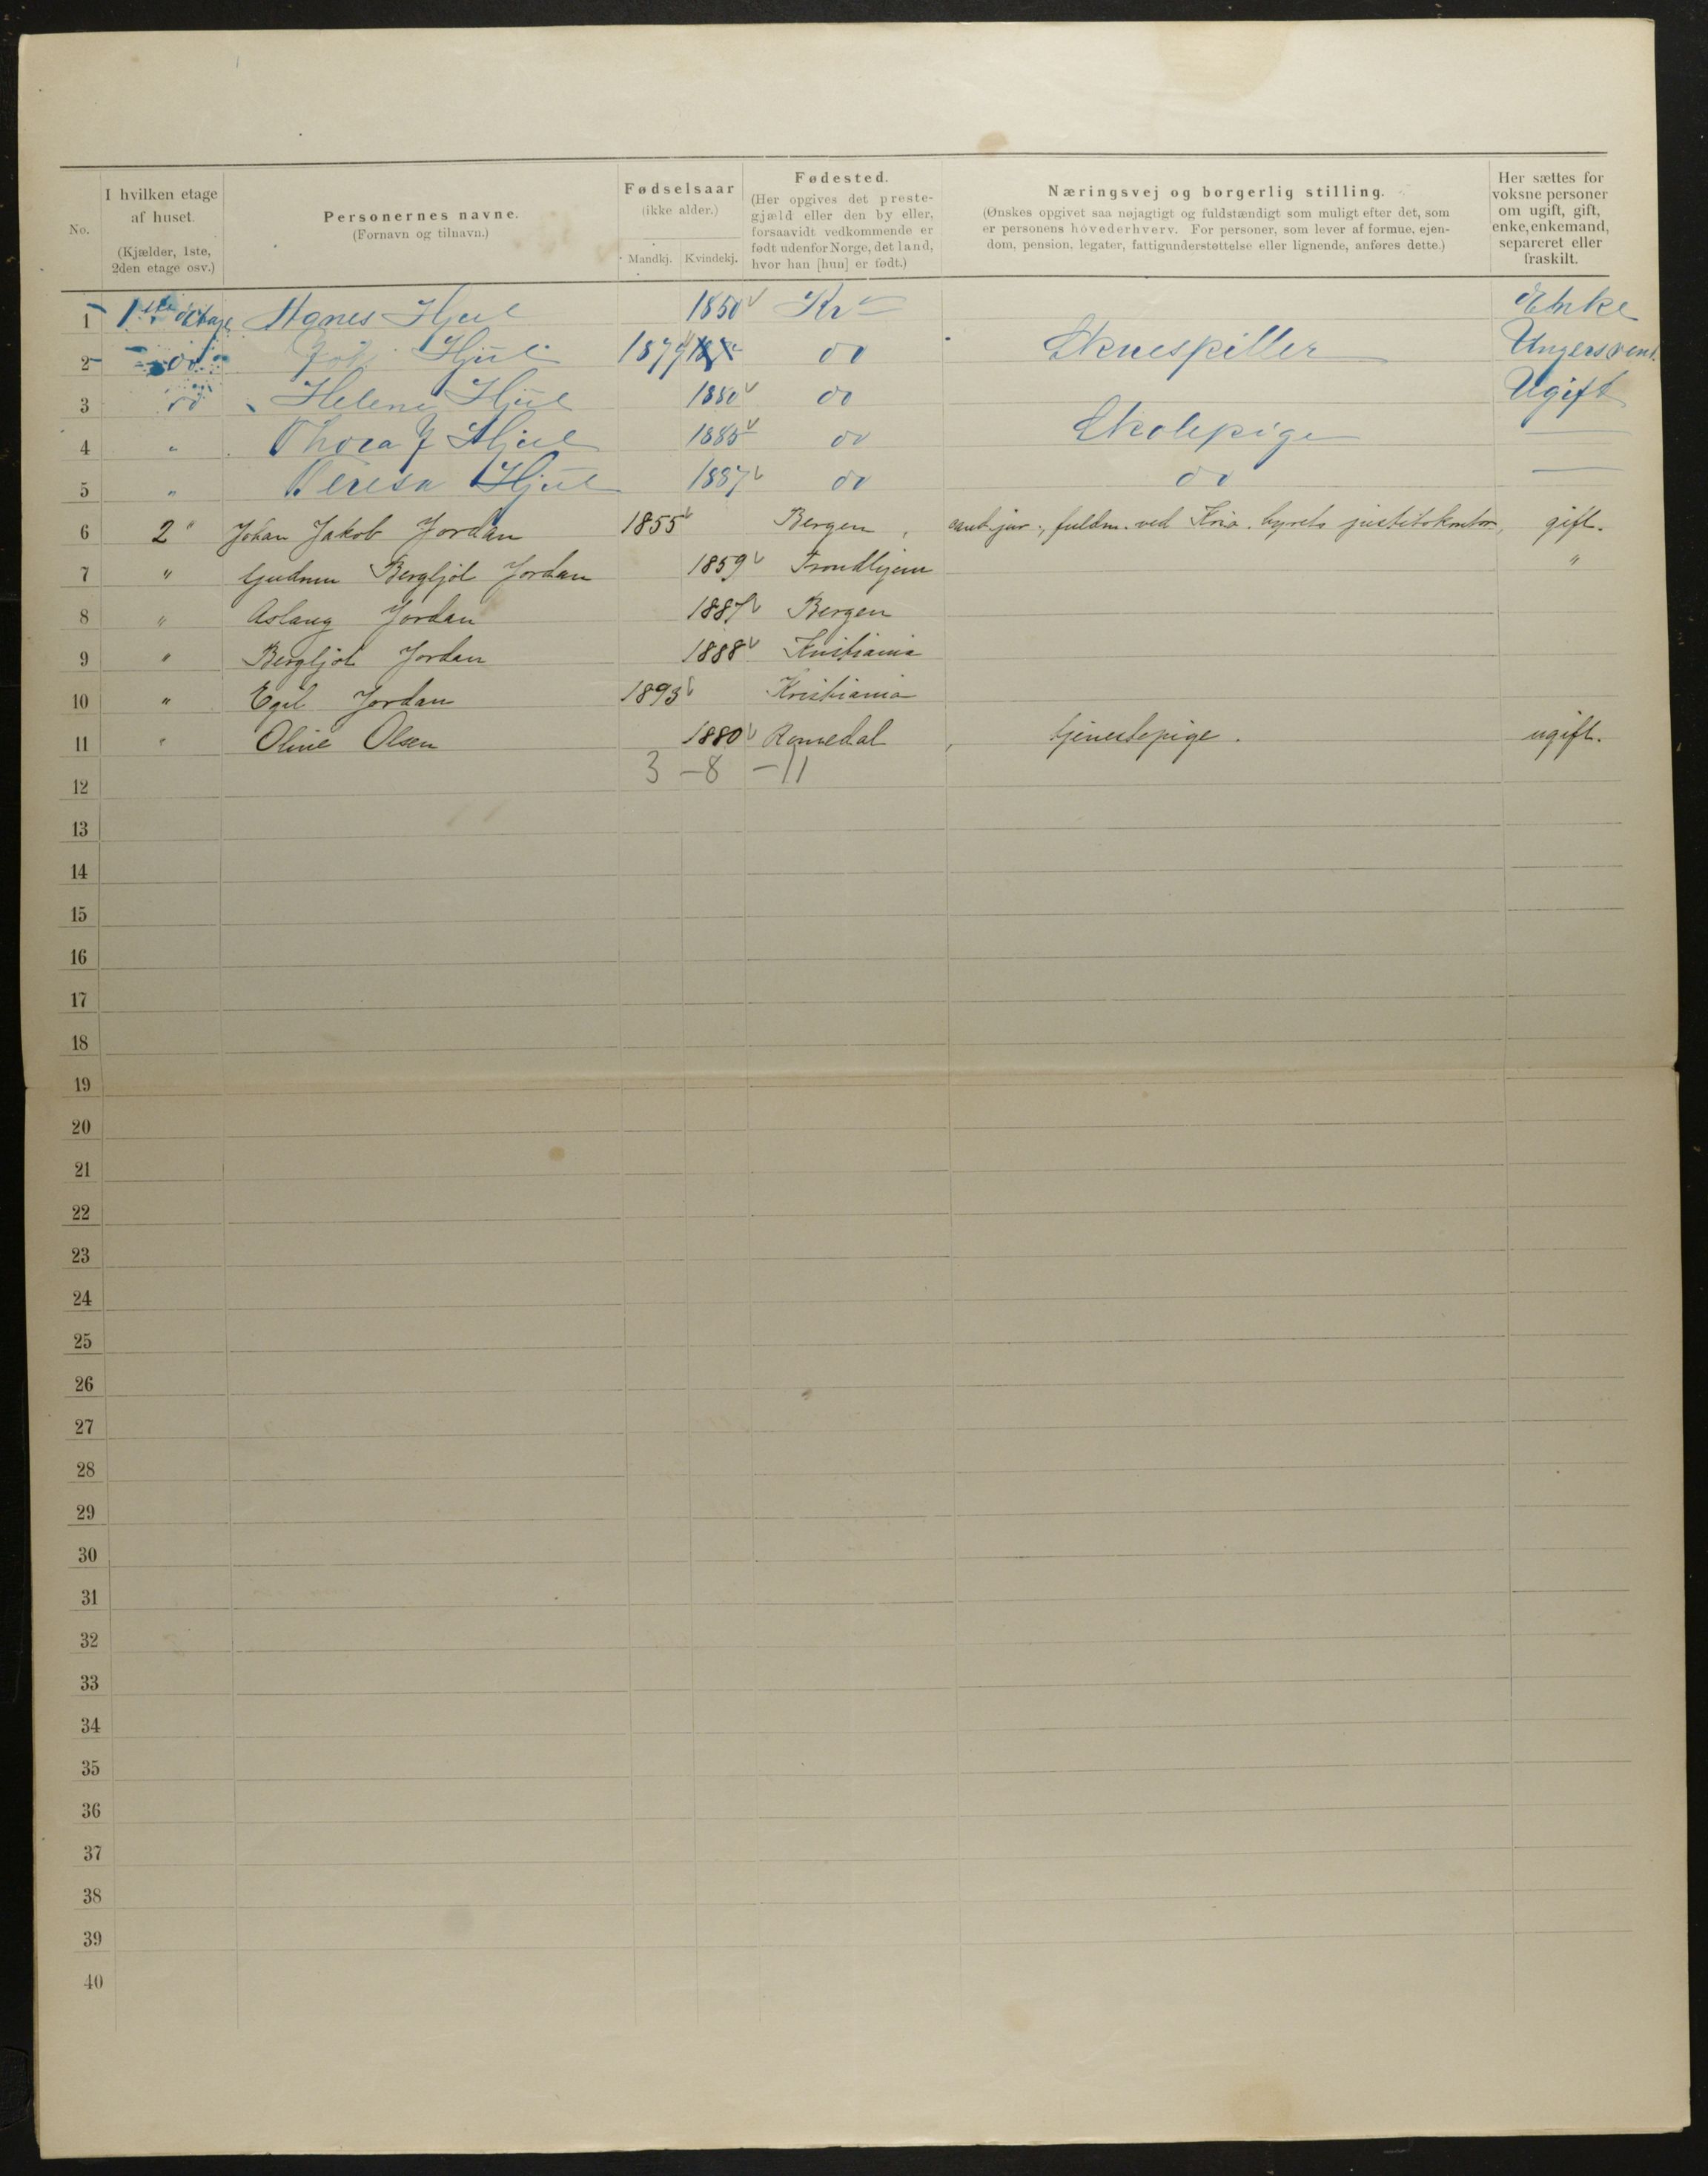 No.
I hvilken etage
af huset.
(Kjælder, 1ste,
2den etage osv.)
Personernes navne.
(Fornavn og tilnavn.)
Fødselsaar
(ikke alder.)
Mandkj. Kvindekj.
Fødested.
(Her opgives det preste-
gjæld eller den by eller,
forsaavidt vedkommende er
født udenfor Norge, det land,
hvor han [hun] er født.)
Næringsvej og borgerlig stilling.
(Ønskes opgivet saa nøjagtigt og fuldstændigt som muligt efter det, som
er personens hovederhverv. For personer, som lever af formue, ejen-
dom, pension, legater, fattigunderstøttelse eller lignende, anføres dette.)
Her sættes for
voksne personer
om ugift, gift,
enke, enkemand,
separeret eller
fraskilt.
1 1ste Agnes Hjul 1850 Kr Enke
2 do Hjul 1879 do Skuespiller Ungersvend
3 do Helene Hjul 1880 do Ugift
4 " Thora J Hjul 1885 do Skolepige —
5 " Teresa Hjul 1887 do do —
6 2 " Johan Jakob Jordan 1855 Bergen, cand. jur., fuldm. ved Kria. byrets justitskontor, gift.
7 " Gudrun Bergljot Jordan 1859 Trondhjem "
8 " Aslaug Jordan 1887 Bergen
9 " Bergljot Jordan 1888 Kristiania
10 " Egil Jordan 1893 Kristiania
11 " Oline Olsen 1880 Romedal tjenestepige. ugift.
12 3 — 8 — 11
13
14
15
16
17
18
19
20
21
22
23
24
25
26
27
28
29
30
31
32
33
34
35
36
37
38
39
40